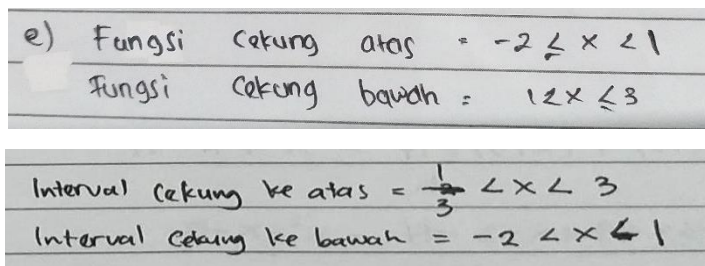 e) Fungsi Cekung atas = -2 ≤ x < 1
Fungsi Cekung bawah = 1 < x ≤ 3
Interval Cekung ke atas = 1/3 < x < 3
Interval Cekung ke bawah = -2 < x < 1